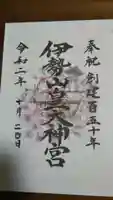 奉祝 創建百五十年
伊勢山皇大神宮
令和二年 十月二〇日